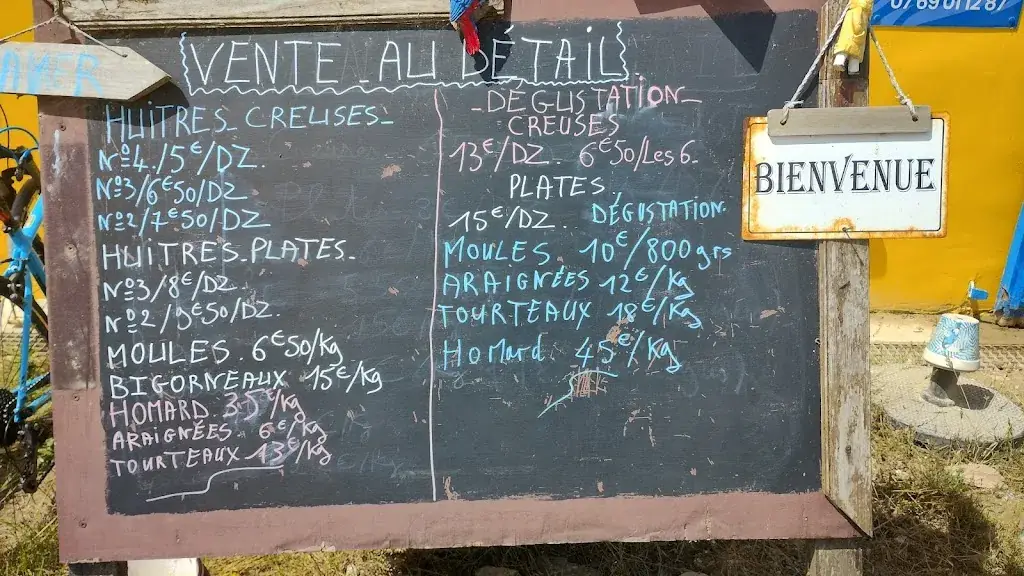 VENTE AU DÉTAIL
HUITRES CREUSES
Nº4/5€/DZ
Nº3/6€50/DZ
Nº2/7€50/DZ
HUITRES PLATES
Nº3/8€/DZ
Nº2/9€50/DZ.
MOULES. 6€50/Kg
BIGORNEAUX 15€/Kg
HOMARD 35€/Kg
ARAIGNÉES. 6€/Kg
TOURTEAUX 13€/Kg
DÉGUSTATION
CREUSES
13€/DZ. 6€50/Les 6.
PLATES.
15€/DZ. DÉGUSTATION.
MOULES. 10€/800grs
ARAIGNÉES 12€/Kg
TOURTEAUX 18€/Kg
Homard 45€/Kg
BIENVENUE